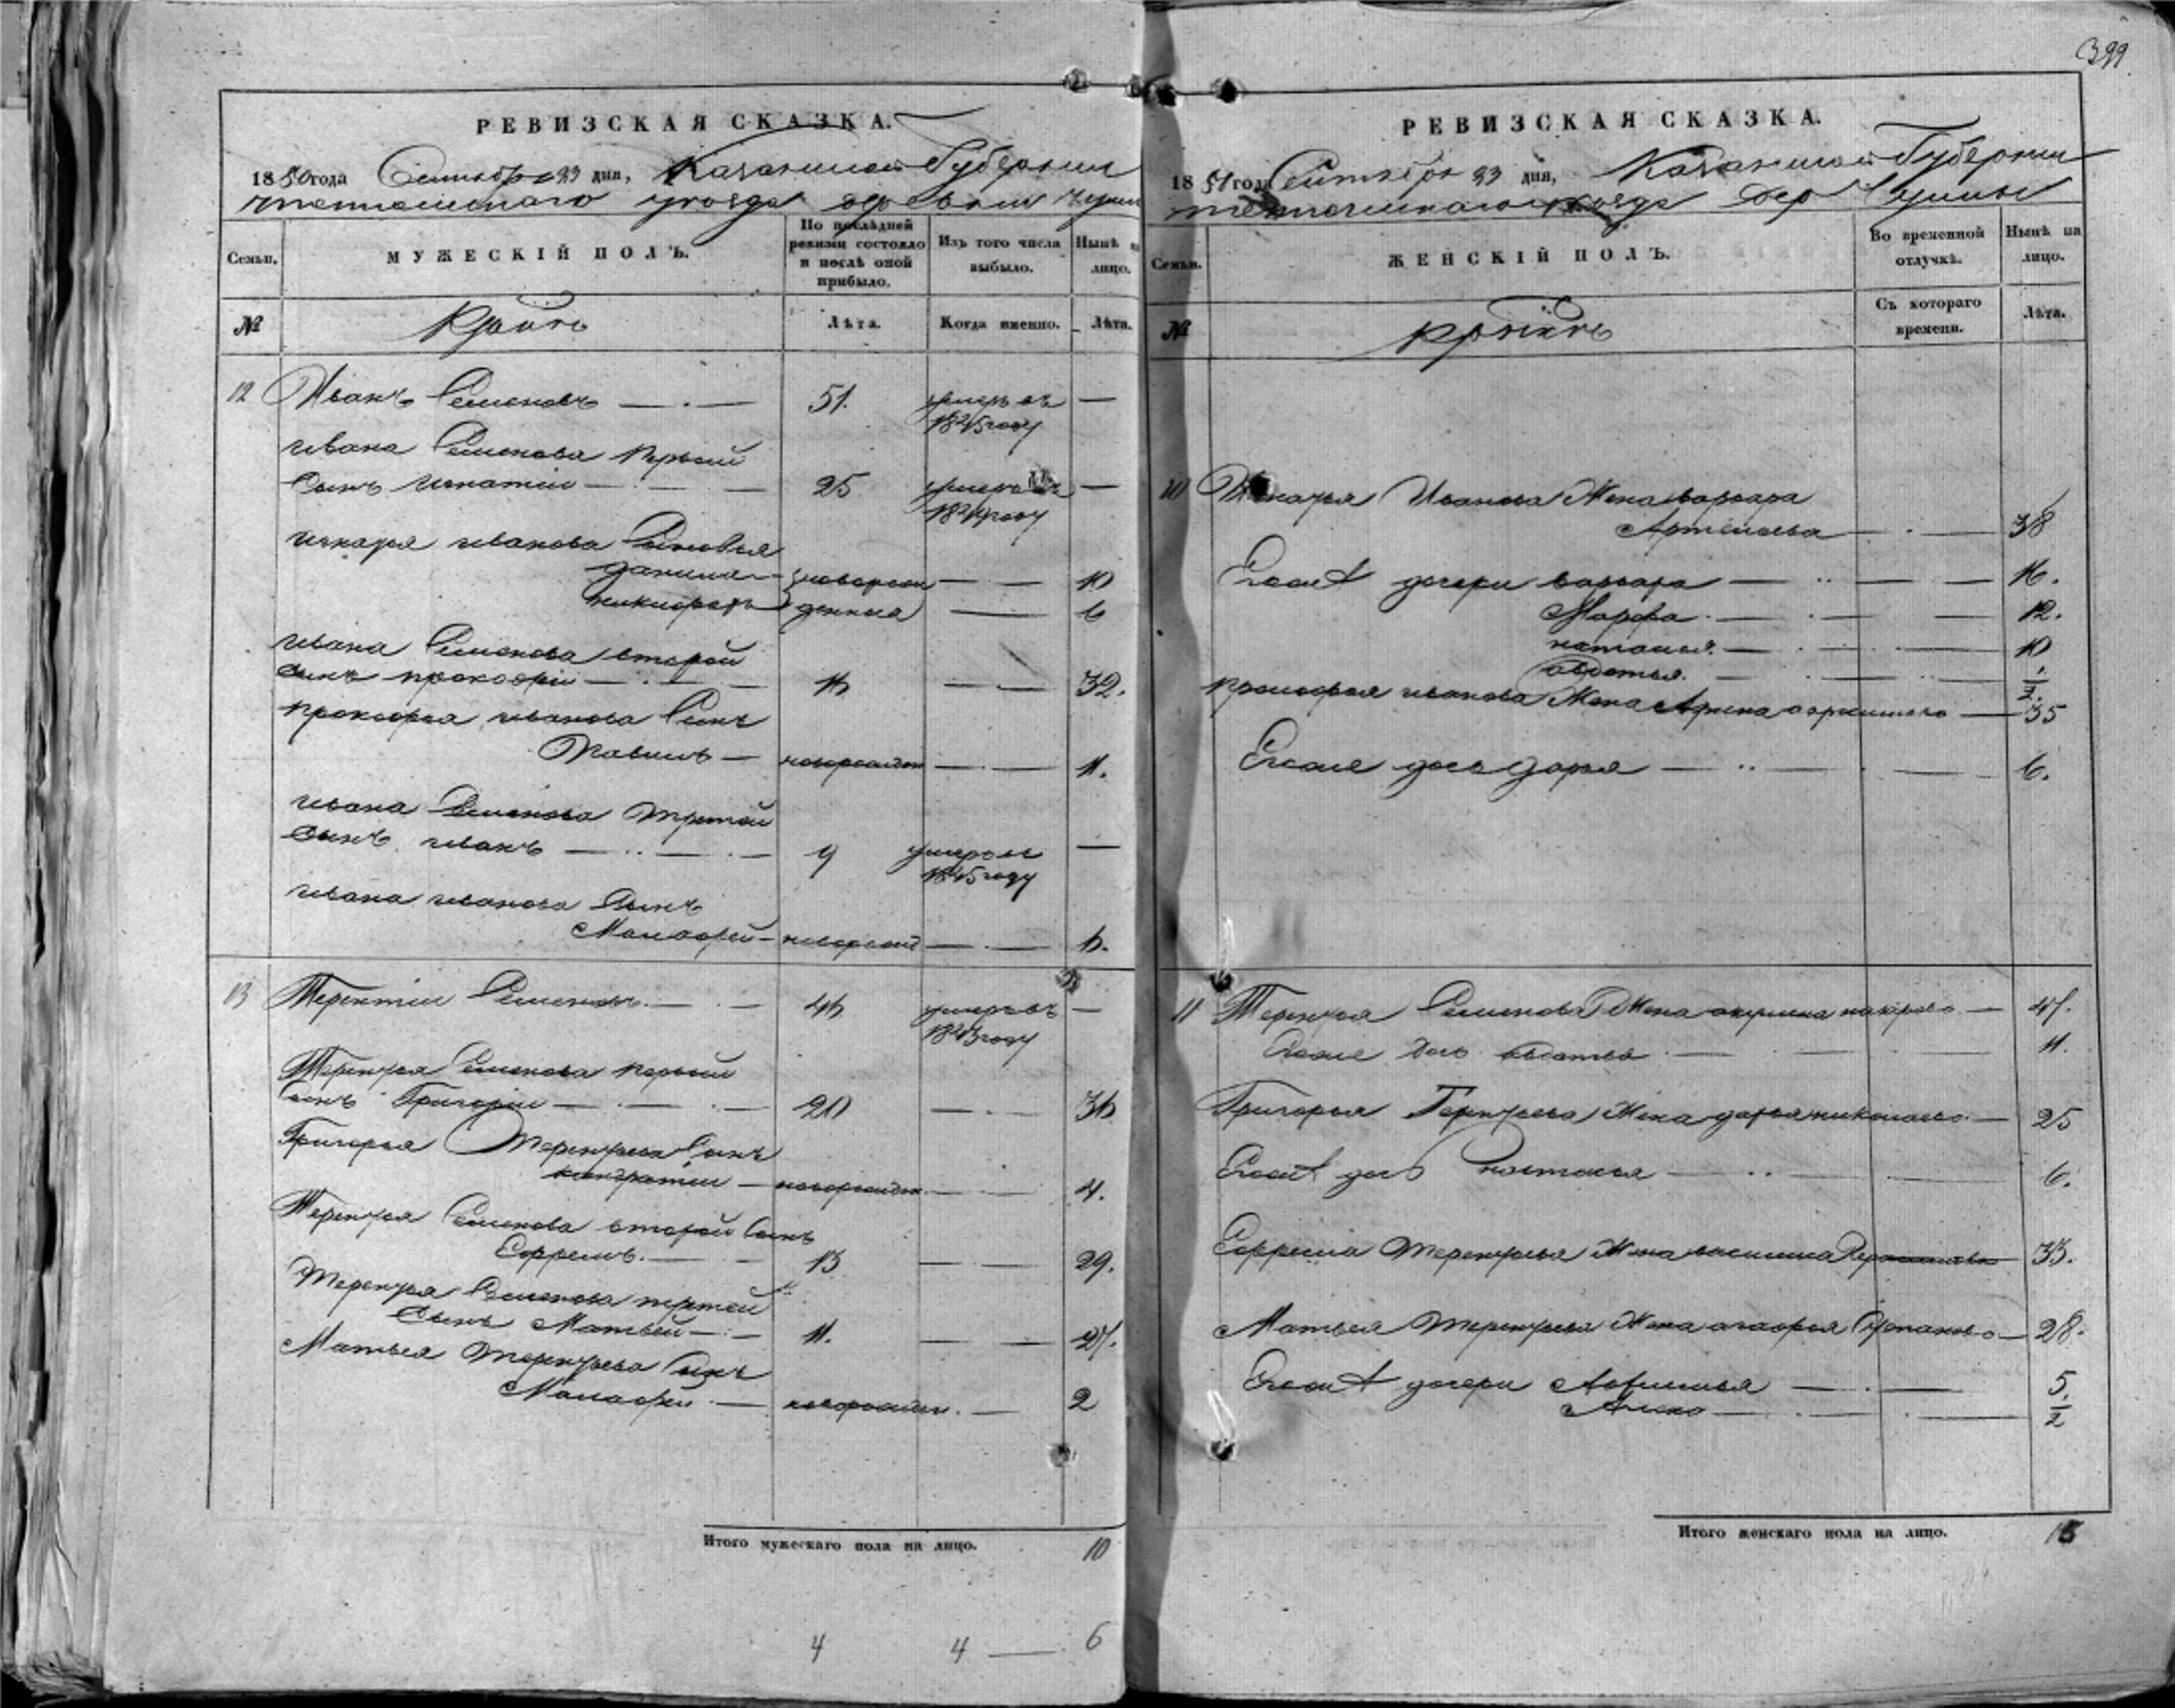 399
РЕВИЗСКАЯ СКАЗКА.
1850 года Сентября 23 дня, Казанской Губернии
уезда деревни
Семьи.
МУЖЕСКІЙ ПОЛЪ.
По послѣдней ревизіи состояло и послѣ оной прибыло.
Изъ того числа выбыло.
Нынѣ на лицо.
№
Лѣта.
Когда именно.
Лѣта.
12 Иванъ Семеновъ — 51. умеръ въ 1845 году —
Ивана Семенова первой
сынъ Игнатіи — 25 умеръ въ —
Игнатья Иванова Сыновья
Данила — новорож — 10
Никифоръ денныя — 6
Ивана Семенова второй
сынъ Прокофіи — 16 — 32.
Прокофья Иванова Сынъ
Павилъ — новорожден — 11.
Ивана Семенова третей
сынъ Иванъ — 9 умеръ въ 1845 году —
Ивана Иванова Сынъ
Малафей — новорожд — 6.
13 Терентіи Семеновъ — 46 умеръ въ 1843 году —
Терентья Семенова первыи
сынъ Григоріи — 20 — 36
Григорья Терентьева Сынъ
Кондратіи — новорожден — 4.
Терентья Семенова второй сынъ
Ефремъ. — 13 — 29.
Терентья Семенова третей
Сынъ Матвей — 11. — 27.
Матвея Терентьева Сынъ
Малафеи — новорожден. — 2
Итого мужескаго пола на лицо. 10
4 4 — 6
РЕВИЗСКАЯ СКАЗКА.
18 года Сентября 23 дня, Казанской Губернии
уезда Дер
Семьи.
ЖЕНСКІЙ ПОЛЪ.
Во временной отлучкѣ.
Нынѣ на лицо.
№
Съ котораго времени.
Лѣта.
Игнатья Иванова Жена Варвара
Артемьева — 38
Егоже дочери Варвара — 16.
Марфа — 12.
Наталья — 10
Авдотья — 1/2.
Прокофья Иванова Жена Арина — 35
Егоже дочь Дарья — 6.
11 Терентья Семенова Жена Акулина Макарова — 47.
Егоже дочь Авдотья — 11.
Григорья Терентьева Жена Дарья Николаева — 25
Егоже дочь Настасья — 6.
Ефрема Терентьева Жена Василиса — 33.
Матвея Терентьева Жена Агафья Степанова — 28.
Егоже дочери — 5.
— 1/2
Итого женскаго пола на лицо. 15